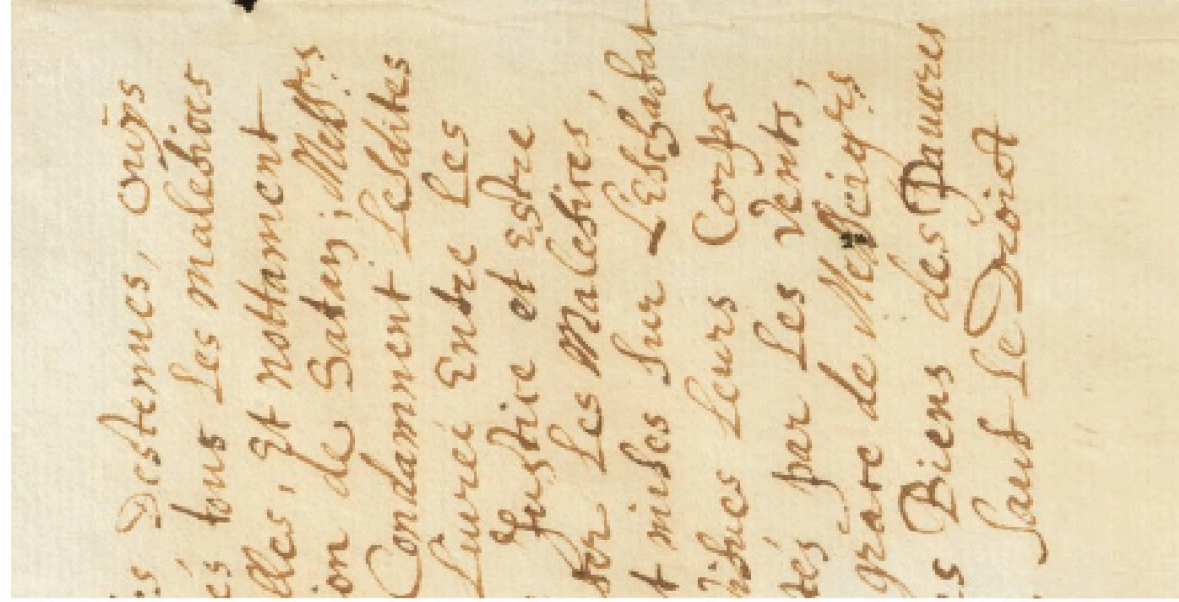 es Destenues, ouÿs
és tous Les malefices
elles, Et nottamment
ion de Satan; Mess.rs
Condamnent Lesdites
Liurée Entre Les
Justice et Estre
ster Les Malefices,
t mises sur L'Eschafat
duës Leurs Corps
tés par Les Vents,
grace de Mes Seig.rs
s Biens des Pauures
Sauf Le Droict